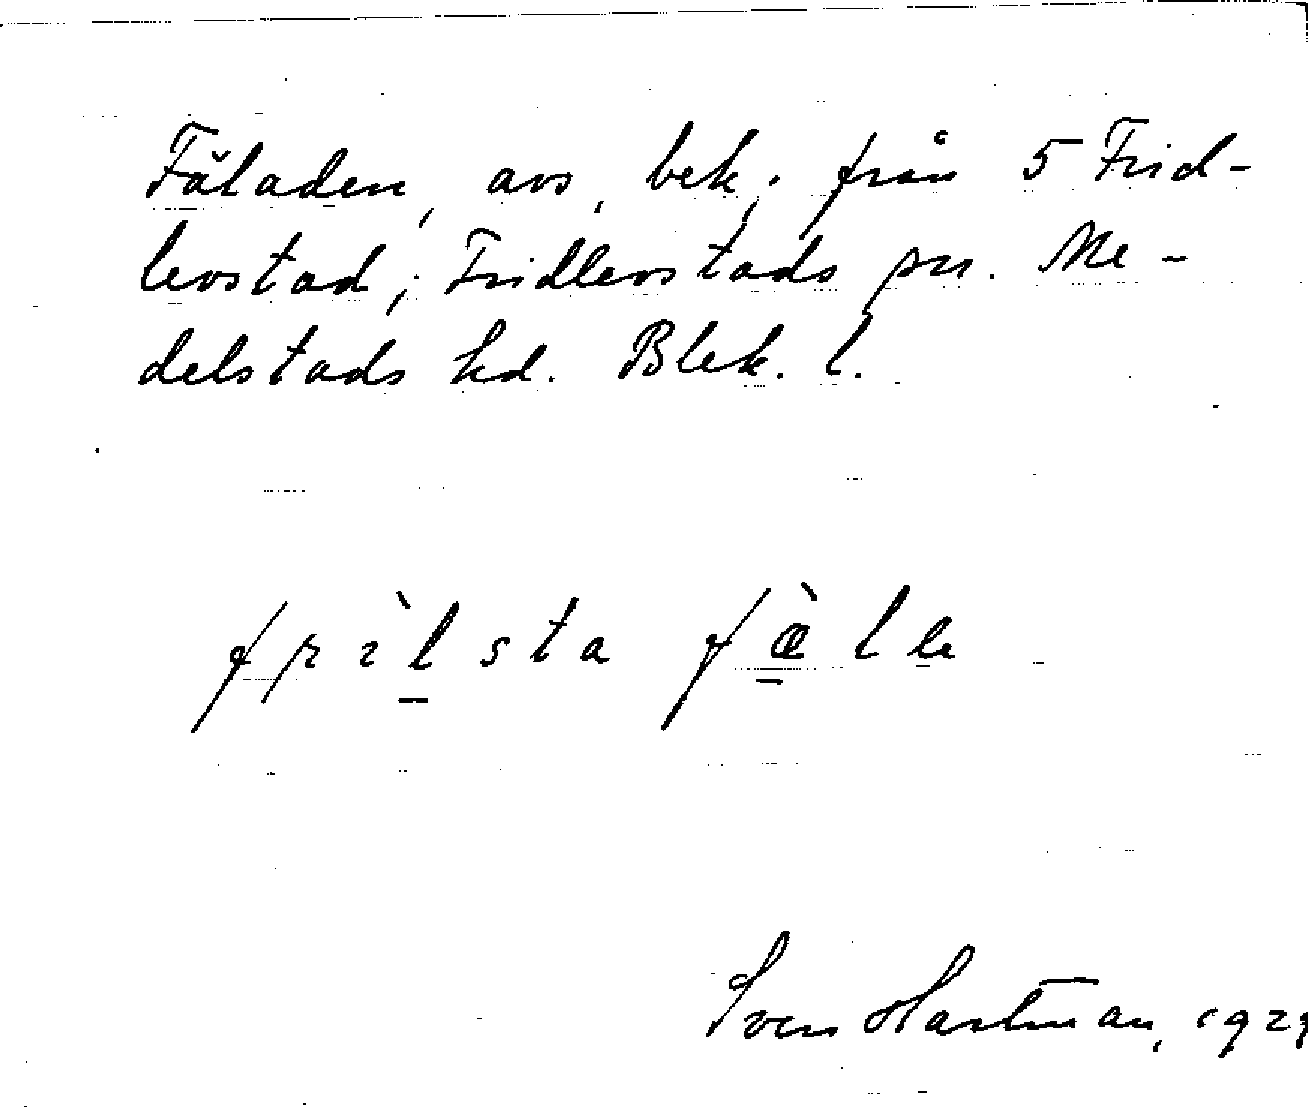 Fäladen, avs, bek. från 5 Frid-
levstad, Fridlevstads sn. Me-
delstads hd. Blek. l.
frìlsta fælle
Sven Hartman, 192